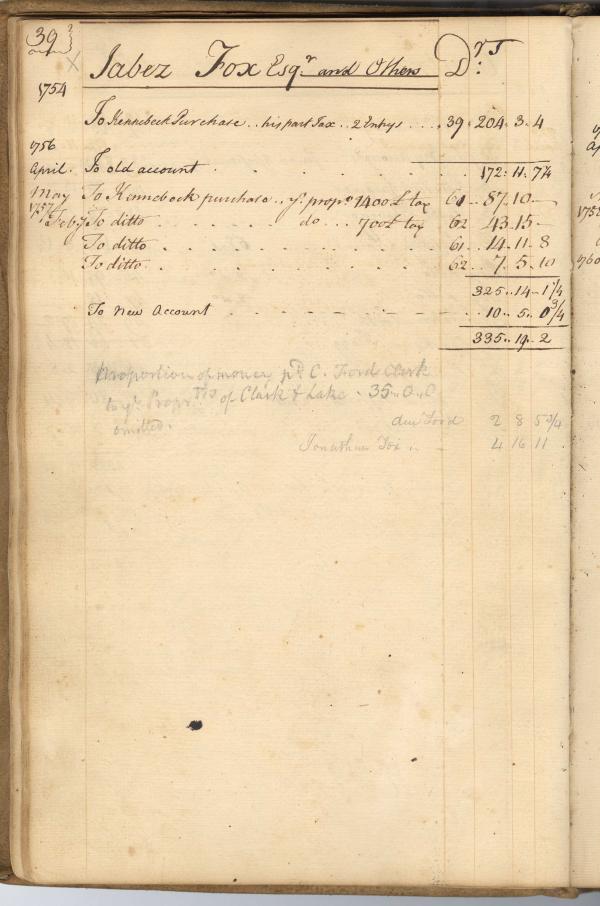 39
Jabez Fox Esqr. and Others Dr.
1754
To Kennebeck Purchase .. his part Tax .. 2 Entrys .... 39 . 204 . 3 . 4
1756
April . To old account . . . . . . . 172 : 11 . 7 1/4
May To Kennebeck purchase .. ye. propn 1400£ tax 61 .. 87 .. 10 —
1757
Feby To ditto . . . . . do .. 700£ tax 62 . 43 . 15 —
To ditto . . . . . . . . 61 .. 14 .. 11 .. 8
To ditto . . . . . . . . 62 .. 7 .. 5 .. 10
325 .. 14 .. 1 1/4
To New Account . . . . . . 10 .. 5 .. 0 3/4
335 .. 19 .. 2
Proportion of money pd. C. Ford Clerk
to ye. Proprtrs of Clark & Lake . 35 .. 0 .. 0
omitted .
due Ford 2 8 5 3/4
Jonathan Fox .. 4 16 11